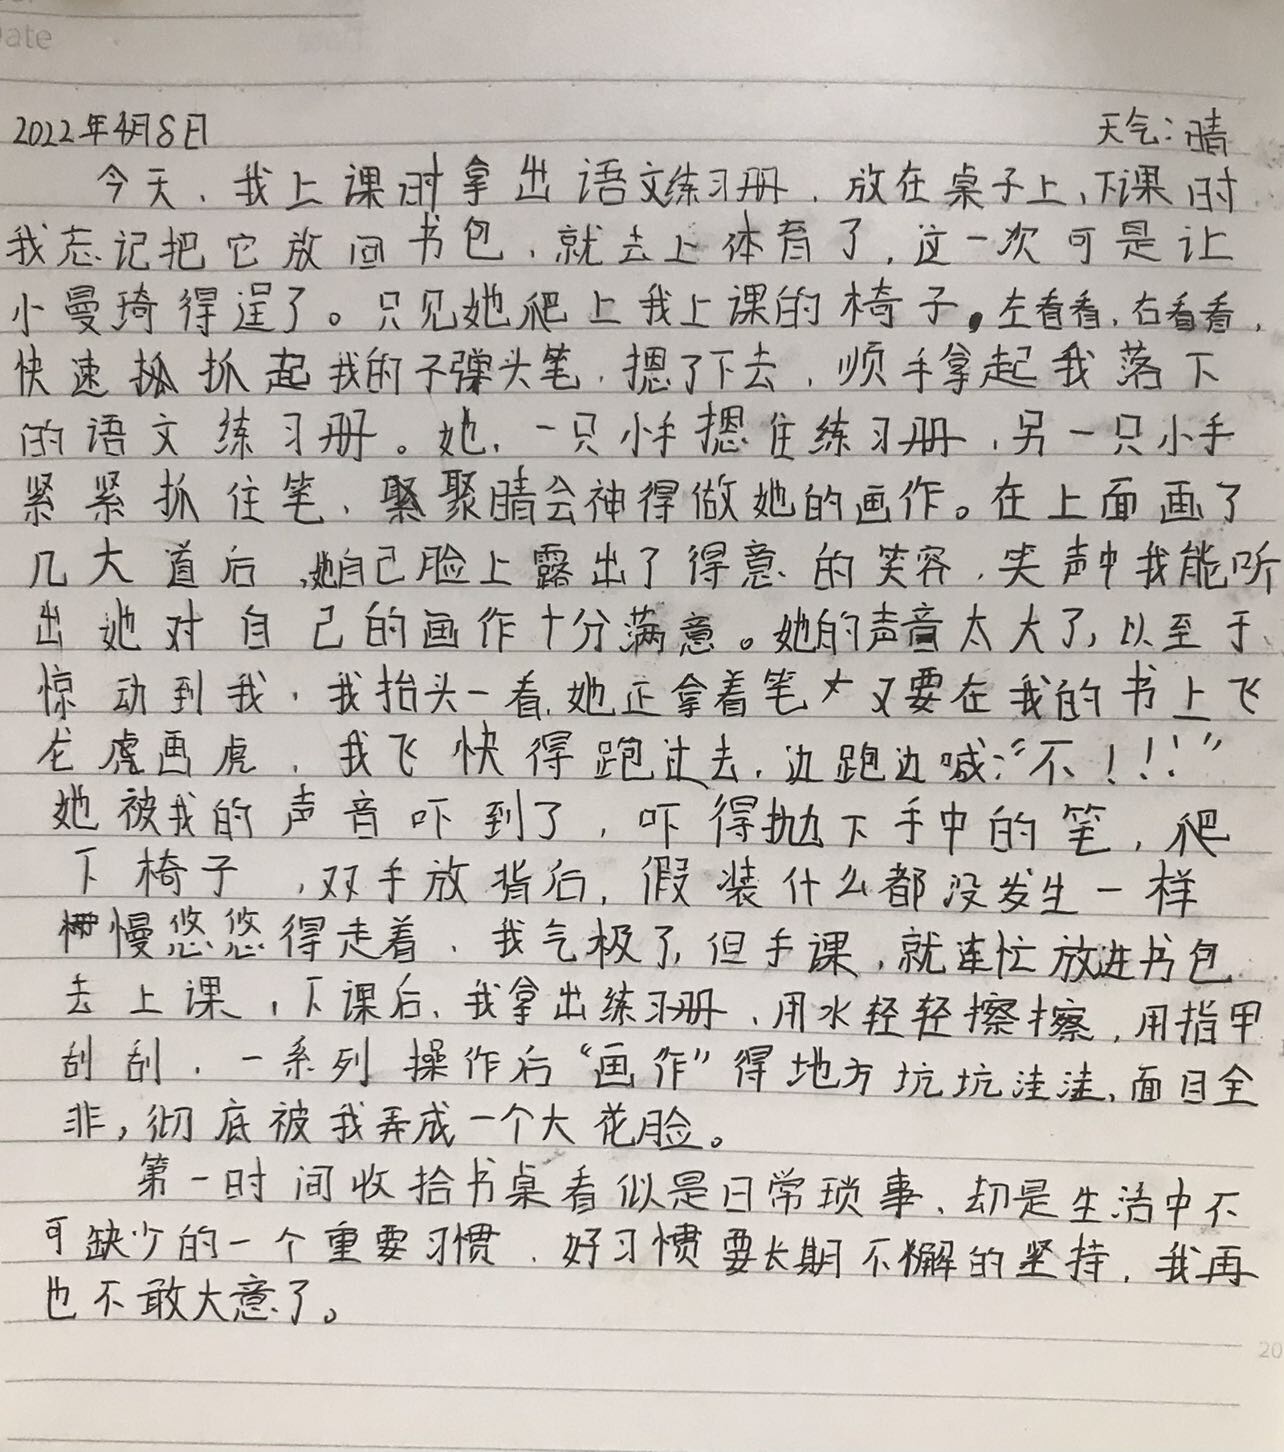 Date
2022年4月8日 天气：晴
今天，我上课时拿出语文练习册，放在桌子上，下课时
我忘记把它放回书包，就去上体育了，这一次可是让
小曼琦得逞了。只见她爬上我上课的椅子，左看看，右看看，
快速抓起我的子弹头笔，摁了下去，顺手拿起我落下
的语文练习册。她，一只小手摁住练习册，另一只小手
紧紧抓住笔，聚睛会神得做她的画作。在上面画了
几大道后，她自己脸上露出了得意的笑容，笑声中我能听
出她对自己的画作十分满意。她的声音太大了，以至于
惊动到我，我抬头一看，她正拿着笔又要在我的书上飞
龙虎画虎，我飞快得跑过去，边跑边喊：“不！！！”
她被我的声音吓到了，吓得抛下手中的笔，爬
下椅子，双手放背后，假装什么都没发生一样
慢悠悠得走着，我气极了，但手课，就连忙放进书包
去上课，下课后，我拿出练习册，用水轻轻擦擦，用指甲
刮刮，一系列操作后“画作”得地方坑坑洼洼，面目全
非，彻底被我弄成一个大花脸。
第一时间收拾书桌看似是日常琐事，却是生活中不
可缺少的一个重要习惯，好习惯要长期不懈的坚持，我再
也不敢大意了。
20